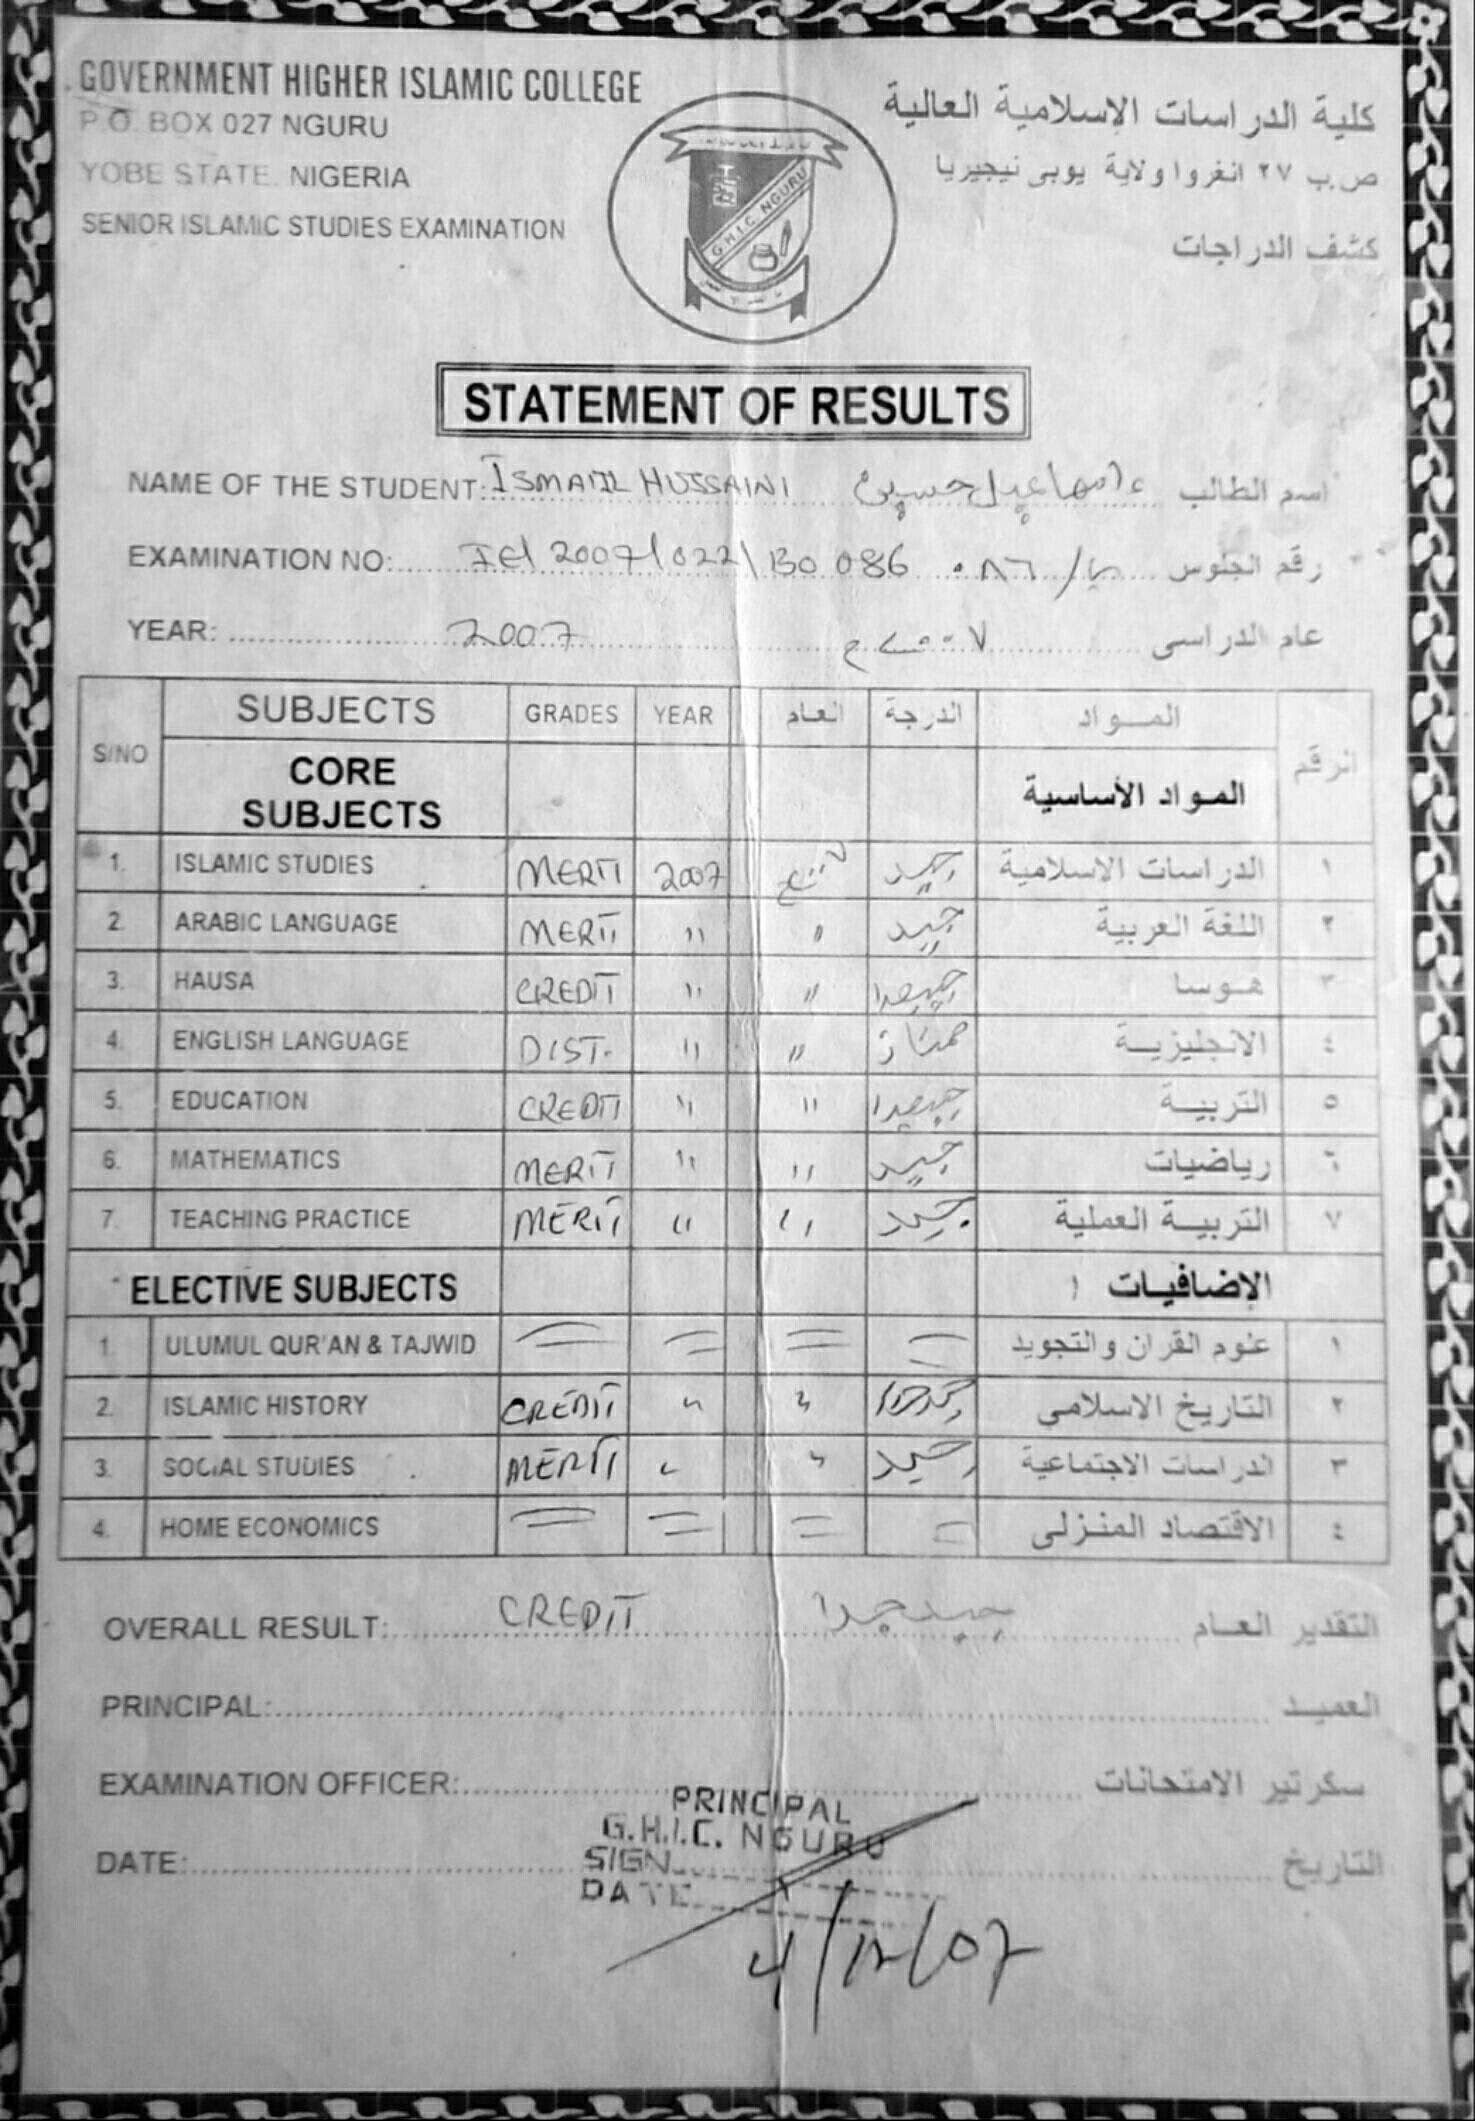 GOVERNMENT HIGHER ISLAMIC COLLEGE
P.O. BOX 027 NGURU
YOBE STATE. NIGERIA
SENIOR ISLAMIC STUDIES EXAMINATION
كلية الدراسات الإسلامية العالية
ص.ب ٢٧ انغروا ولاية يوبى نيجيريا
كشف الدراجات
G.H.I.C. NGURU
STATEMENT OF RESULTS
NAME OF THE STUDENT: ISMAIIL HUSSAINI اسماعيل حسين اسم الطالب
EXAMINATION NO: 2007/022/BO 086 ٠٨٦ رقم الجلوس
YEAR: 2007 عام الدراسى
S/NO SUBJECTS GRADES YEAR العام الدرجة المـواد الرقم
CORE SUBJECTS المواد الأساسية
1. ISLAMIC STUDIES MERIT 2007 جيد الدراسات الاسلامية ١
2. ARABIC LANGUAGE MERIT " " جيد اللغة العربية ٢
3. HAUSA CREDIT " " جيد جدا هـوسا ٣
4. ENGLISH LANGUAGE DIST. " " ممتاز الانجليزيـة ٤
5. EDUCATION CREDIT " " جيد جدا التربيـة ٥
6. MATHEMATICS MERIT " " جيد رياضيات ٦
7. TEACHING PRACTICE MERIT " " جيد التربيـة العملية ٧
ELECTIVE SUBJECTS الإضافيات
1. ULUMUL QUR'AN & TAJWID = = = = علوم القران والتجويد ١
2. ISLAMIC HISTORY CREDIT " " جيد جدا التاريخ الاسلامى ٢
3. SOCIAL STUDIES MERIT " " جيد الدراسات الاجتماعية ٣
4. HOME ECONOMICS = = = = الاقتصاد المنزلى ٤
OVERALL RESULT: CREDIT جيد جدا التقدير العـام
PRINCIPAL: العميـد
EXAMINATION OFFICER: سكرتير الامتحانات
PRINCIPAL
G.H.I.C. NGURU
DATE: التاريخ
SIGN
DATE
4/12/07